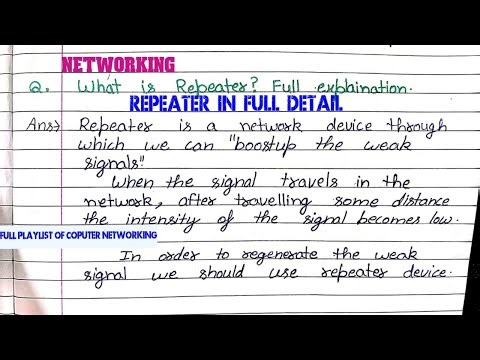 NETWORKING
Q. What is Repeater? Full explaination.
REPEATER IN FULL DETAIL
Ans→ Repeater is a network device through
which we can "boostup the weak
signals"
When the signal travels in the
network, after travelling some distance
the intensity of the signal becomes low.
FULL PLAYLIST OF COPUTER NETWORKING
In order to regenerate the weak
signal we should use repeater device.